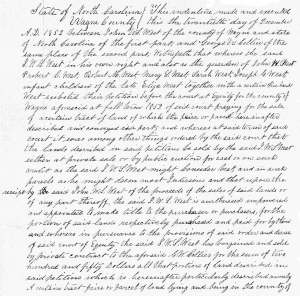 State of North Carolina } This indenture made and executed
Wayne County } this the twentieth day of
A.D. 1852 between John W S West of the county of Wayne and state
of North Carolina of the first part and George of the
same place of the second part Witnesseth that whereas the said
J W S West in his own right and also as the guardian of John H West
Robert L West Mary West Sarah West Joseph G West
infant children of the late West together with
West exhibited their petition before the court of Equity for the county of
Wayne aforesaid at fall term 1852 of said court praying for the sale
of a certain tract of land of which the piece or parcel hereinafter
described and conveyed is a part and whereas at said term of said
court it was among other things ordered by the said court that
the lands described in said petitions be sold by the said J W S West
either at private sale or by public auction for cash or on such
credit as the said J W S West might consider best and in such
parcels as he might deem most judicious and that upon the
receipt by the said John W S West of the proceeds of the sales of said lands or
of any part thereof, the said J W S West is authorised empowered
and appointed to make title to the purchaser or purchasers, for the
portions of said lands respectively purchased and paid for by them
and whereas in pursuance to the provisions of said order and decree
of said court of Equity the said J W S West has bargained and sold
by private contract to the aforesaid for the sum of two
hundred and fifty Dollars all that portion of the land described in
said petitions which is hereinafter particularly described namely
A certain tract piece or parcel of land lying and being in the county of